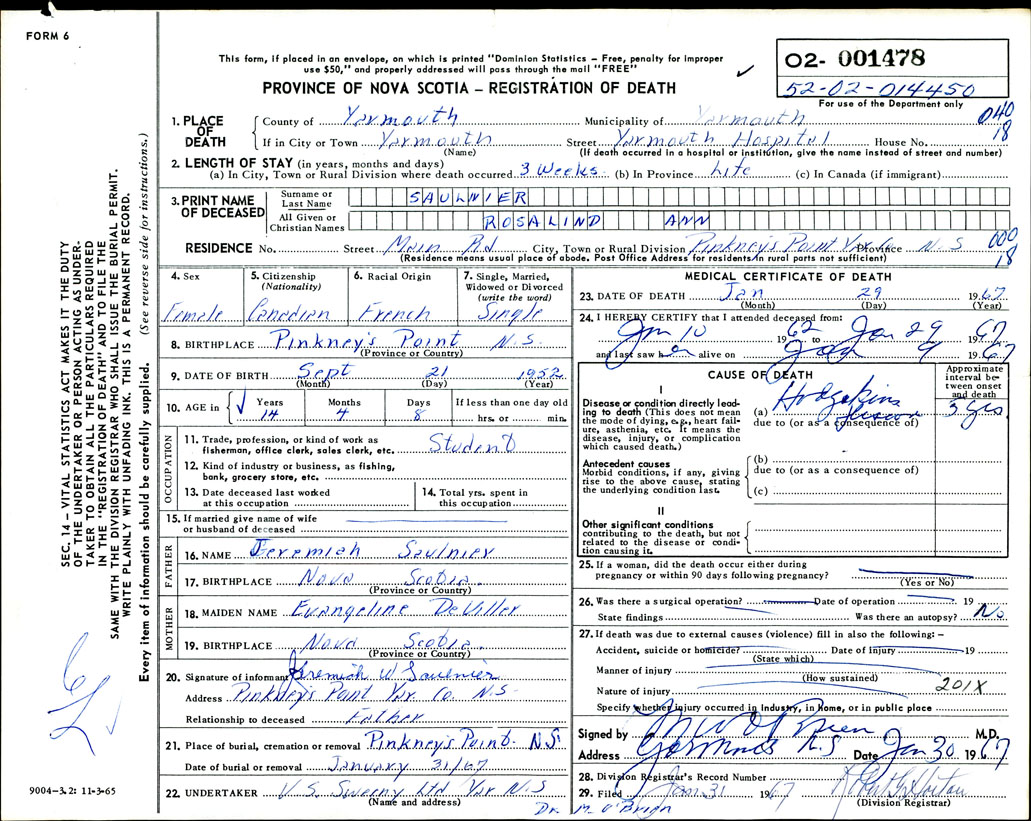 FORM 6
This form, if placed in an envelope, on which is printed "Dominion Statistics – Free, penalty for improper
use $50," and properly addressed will pass through the mail "FREE"
PROVINCE OF NOVA SCOTIA – REGISTRATION OF DEATH
02- 001478
52-02-014450
For use of the Department only
040
18
1. PLACE OF DEATH
County of Yarmouth Municipality of Yarmouth
If in City or Town Yarmouth Street Yarmouth Hospital House No.
(Name) (If death occurred in a hospital or institution, give the name instead of street and number)
2. LENGTH OF STAY (in years, months and days)
(a) In City, Town or Rural Division where death occurred 3 Weeks (b) In Province Life (c) In Canada (if immigrant)
3. PRINT NAME OF DECEASED
Surname or Last Name SAULNIER
All Given or Christian Names ROSALIND ANN
RESIDENCE No. Street Main Rd City, Town or Rural Division Pinkney's Point Yar. Co. Province N.S
(Residence means usual place of abode. Post Office Address for residents in rural parts not sufficient)
000
18
4. Sex Female
5. Citizenship (Nationality) Canadian
6. Racial Origin French
7. Single, Married, Widowed or Divorced (write the word) Single
8. BIRTHPLACE Pinkney's Point N.S.
(Province or Country)
9. DATE OF BIRTH Sept 21 1952
(Month) (Day) (Year)
10. AGE in Years 14 Months 4 Days 8 If less than one day old hrs. or min.
OCCUPATION
11. Trade, profession, or kind of work as
fisherman, office clerk, sales clerk, etc. Student
12. Kind of industry or business, as fishing,
bank, grocery store, etc.
13. Date deceased last worked
at this occupation
14. Total yrs. spent in
this occupation
15. If married give name of wife
or husband of deceased
FATHER
16. NAME Jeremiah Saulnier
17. BIRTHPLACE Nova Scotia
(Province or Country)
MOTHER
18. MAIDEN NAME Evangeline DeViller
19. BIRTHPLACE Nova Scotia
(Province or Country)
20. Signature of informant Jeremiah W Saulnier
Address Pinkney's Point Yar. Co. N.S.
Relationship to deceased Father
21. Place of burial, cremation or removal Pinkney's Point N.S.
Date of burial or removal January 31/67
22. UNDERTAKER V.S. Sweeny Ltd Yar N.S
(Name and address)
Dr. M. O'Brien
MEDICAL CERTIFICATE OF DEATH
23. DATE OF DEATH Jan 29 1967
(Month) (Day) (Year)
24. I HEREBY CERTIFY that I attended deceased from:
Jan 10 1962 to Jan 29 1967
and last saw h alive on 9 1967
CAUSE OF DEATH
Approximate interval between onset and death
I
Disease or condition directly leading to death (This does not mean
the mode of dying, e.g., heart failure, asthenia, etc. It means the
disease, injury, or complication
which caused death.)
(a) Hodgkins disease 3 yrs
due to (or as a consequence of)
Antecedent causes
Morbid conditions, if any, giving
rise to the above cause, stating
the underlying condition last.
(b)
due to (or as a consequence of)
(c)
II
Other significant conditions
contributing to the death, but not
related to the disease or condition causing it.
25. If a woman, did the death occur either during
pregnancy or within 90 days following pregnancy?
(Yes or No)
26. Was there a surgical operation? Date of operation 19
State findings Was there an autopsy? No
27. If death was due to external causes (violence) fill in also the following: –
Accident, suicide or homicide? Date of injury 19
(State which)
Manner of injury
(How sustained)
Nature of injury 201X
Specify whether injury occurred in Industry, in Home, or in public place
Signed by M W O'Brien M.D.
Address Yarmouth N.S Date Jan 30 1967
28. Division Registrar's Record Number
29. Filed Jan. 31 1967 Robert G Horton
(Division Registrar)
SEC. 14 – VITAL STATISTICS ACT MAKES IT THE DUTY
OF THE UNDERTAKER OR PERSON ACTING AS UNDER-
TAKER TO OBTAIN ALL THE PARTICULARS REQUIRED
IN THE "REGISTRATION OF DEATH" AND TO FILE THE
SAME WITH THE DIVISION REGISTRAR WHO SHALL ISSUE THE BURIAL PERMIT.
WRITE PLAINLY WITH UNFADING INK. THIS IS A PERMANENT RECORD.
Every item of information should be carefully supplied. (See reverse side for instructions.)
9004-3.2: 11-3-65